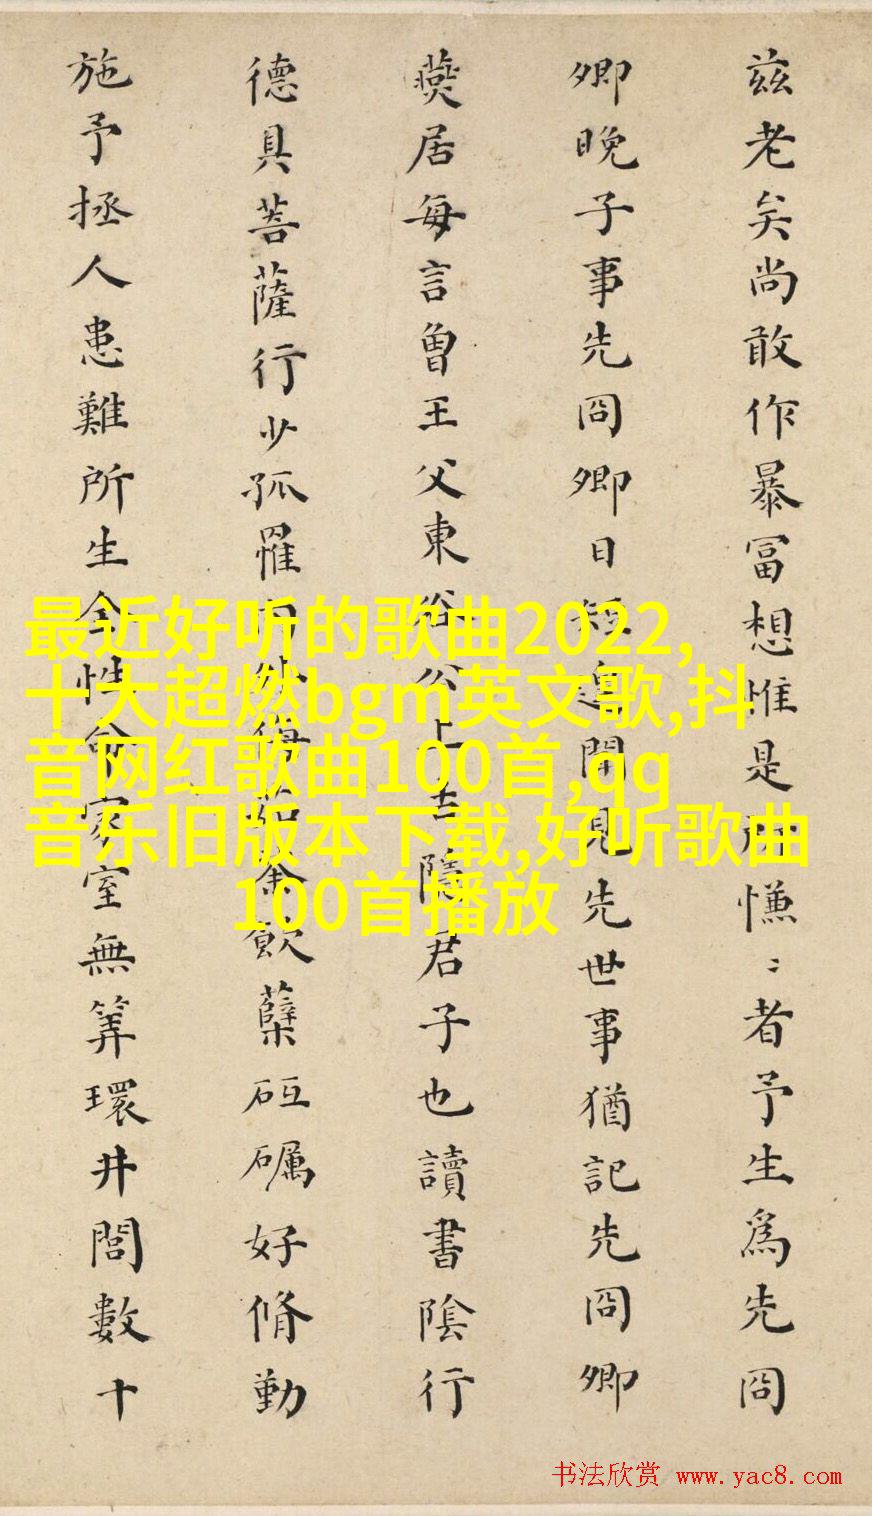 兹老矣尚敢作暴富想惟是所慊〻者予生為先冏
卿晚子事先冏卿日短追聞見先世事猶記先冏卿
燕居每言曾王父東谷公上吉隱君子也讀書陰行
德具菩薩行少孤罹內外侮茹荼飲蘖砥礪好脩勤
施予拯人患難所生全性命家室無筭環井閭數十
最近好听的歌曲2022,
十大超燃bgm英文歌,抖
音网红歌曲100首,qq
音乐旧版本下载,好听歌曲
100首播放
书法欣赏 www.yac8.com